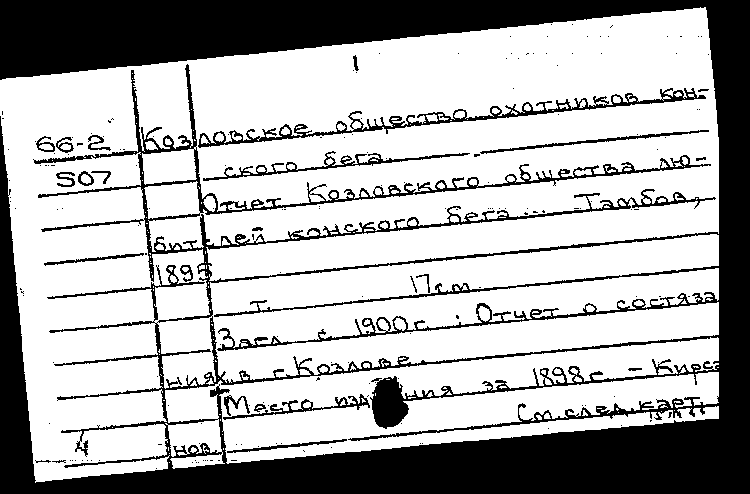 1
66-2 Козловское общество охотников кон-
507 ского бега.
Отчет Козловского общества лю-
бителей конского бега... Тамбов,
1895.
т. 17см.
Загл. с 1900г.: Отчет о состяза
ниях в г. Козлове.
Место издания за 1898г - Кирса
См.след.карт.
4 нов.